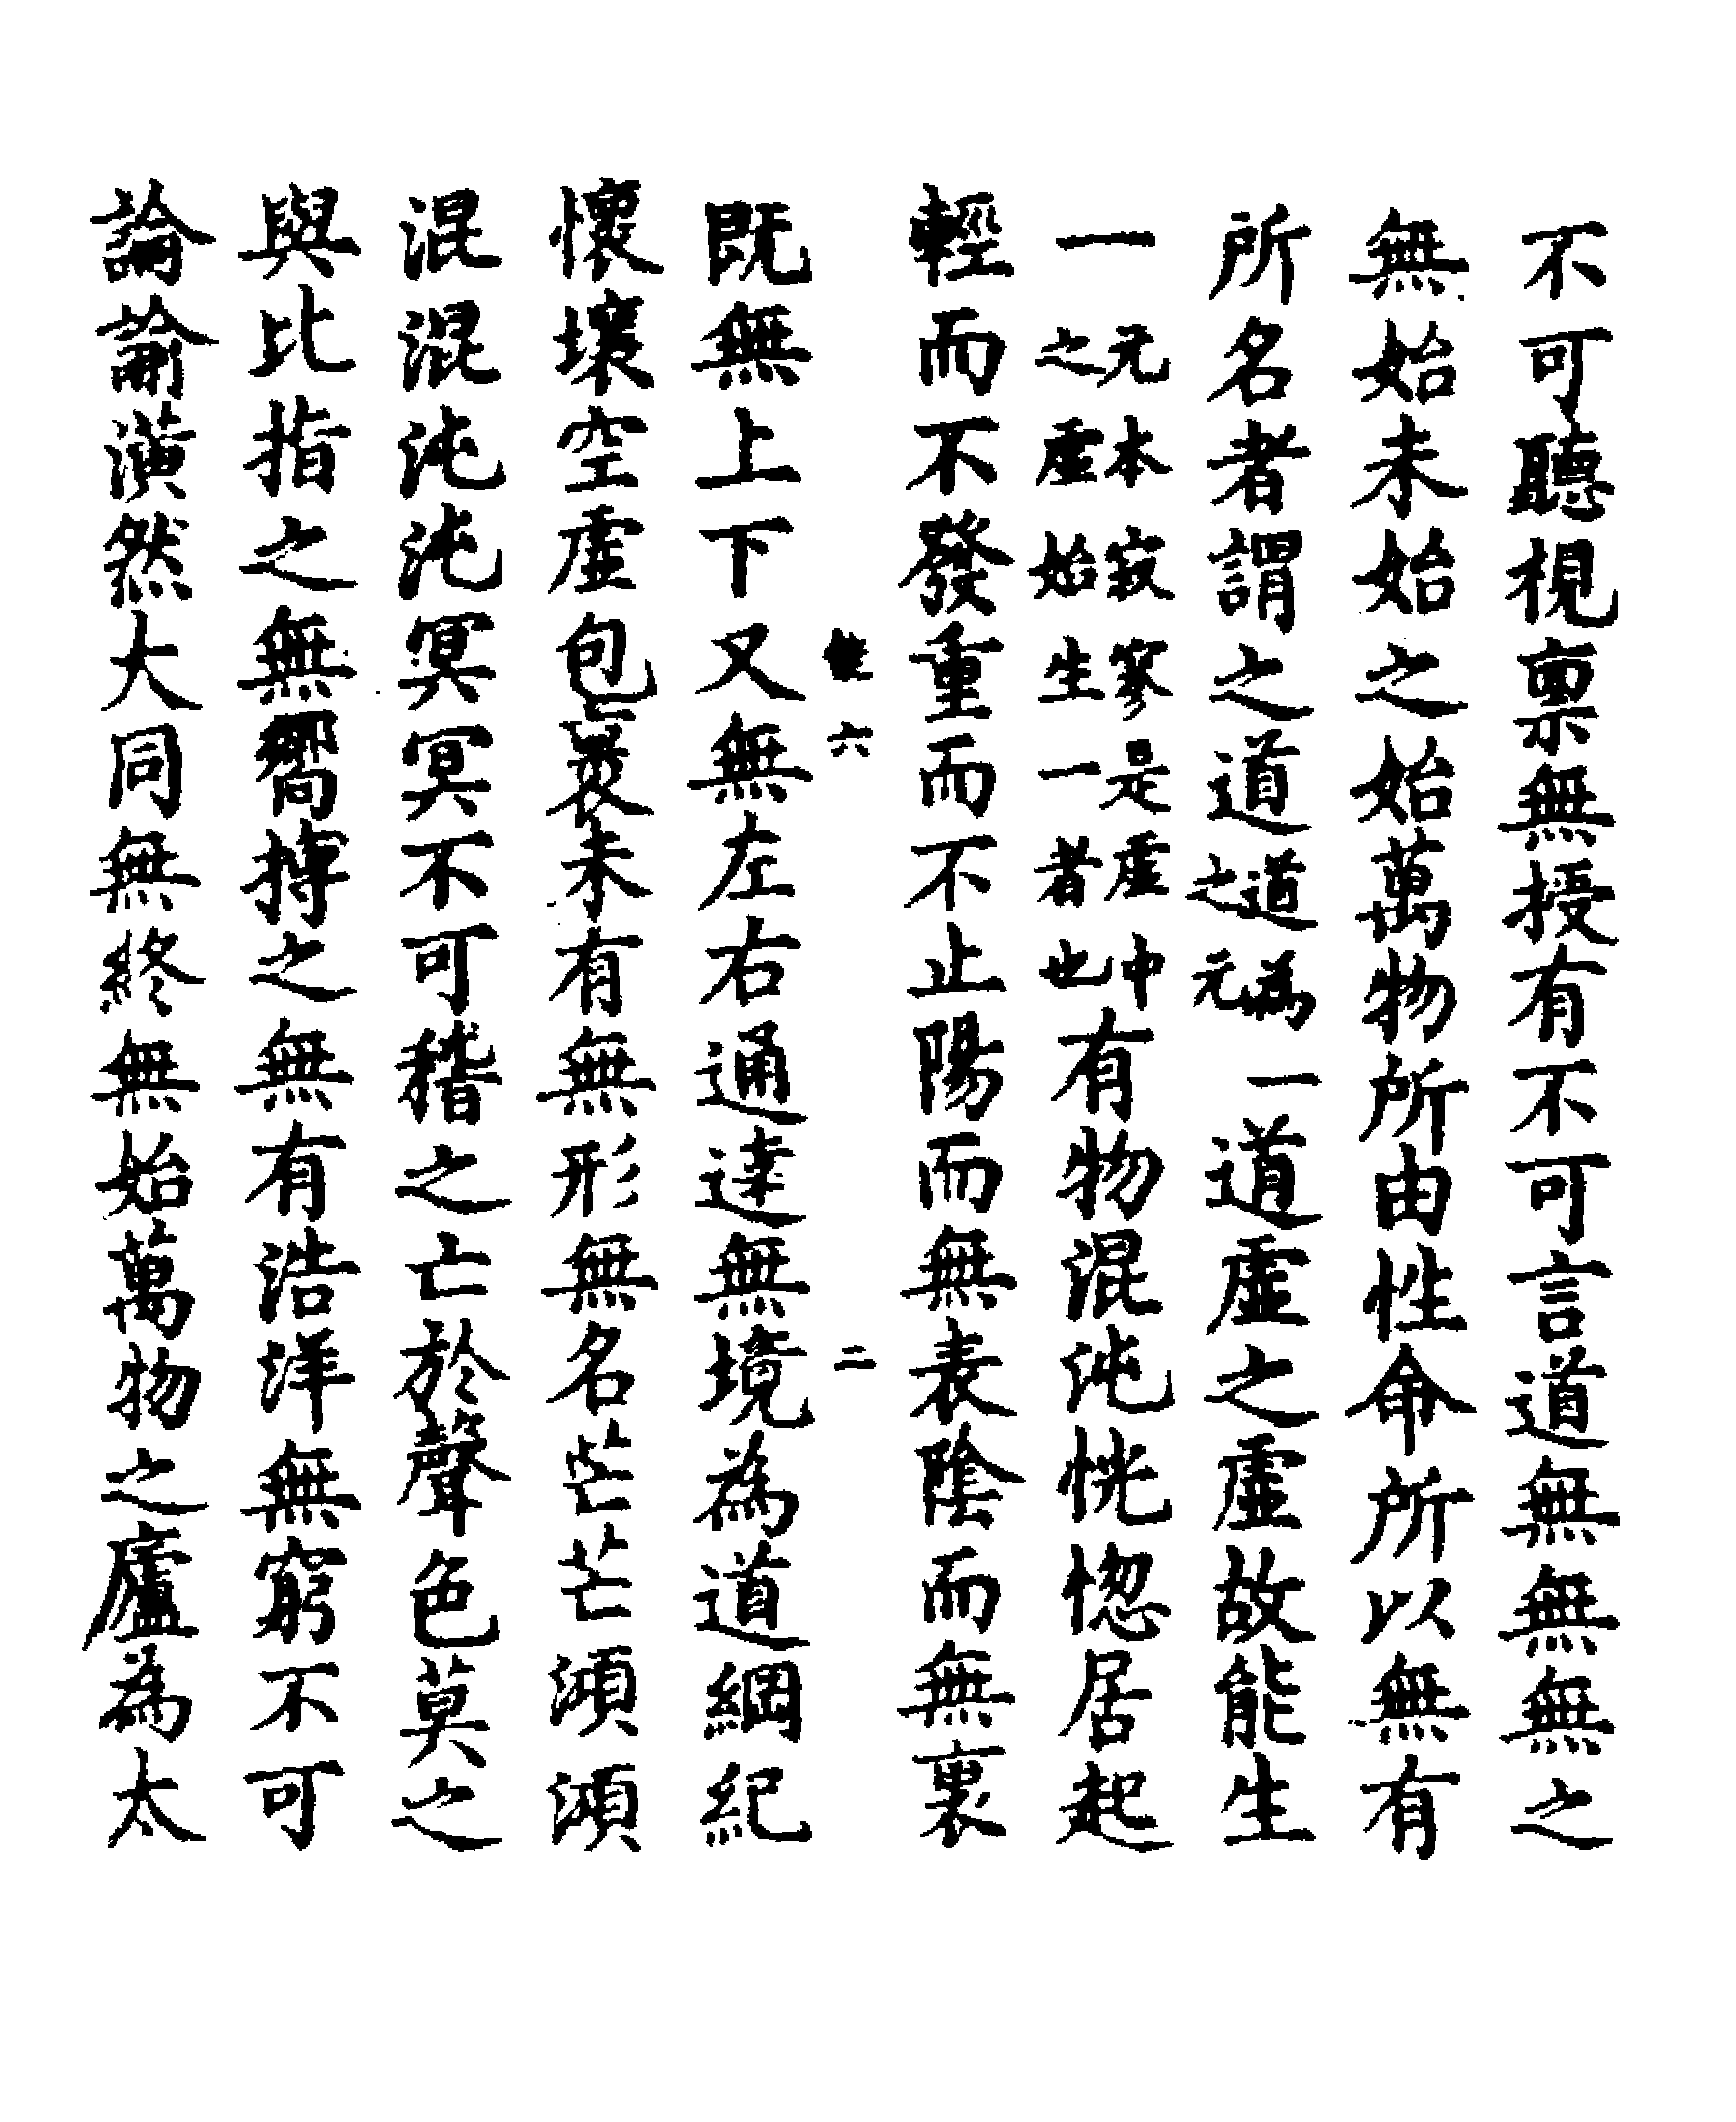 不可聽視稟無授有不可言道無無無之
無始未始之始萬物所由性命所以無有
所名者謂之道道為之元一道虛之虛故能生
一元本寂寥是虛中之虛始生一者也有物混沌恍惚居起
輕而不發重而不止陽而無表陰而無裏
六 二
既無上下又無左右通達無境為道綱紀
懷壤空虛包裹未有無形無名芒芒澒澒
混混沌沌冥冥不可稽之亡於聲色莫之
與比指之無嚮搏之無有浩洋無窮不可
論諭潢然大同無終無始萬物之廬為太